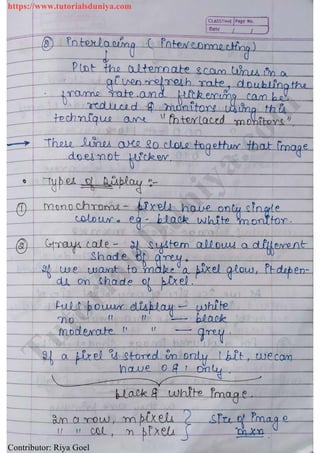 https://www.tutorialsduniya.com
CLASSTIME Page No.
Date / /
③ Interlacing (interconnecting)
Plot the alternate scan lines in a
given refresh rate, doubling the
frame rate and flickering can be
reduced & monitors using this
technique are "interlaced monitors"
→ These lines are so close together that image
does not flicker.
• Types of Display :-
① monochrome - pixels have only single
colour. eg - black white monitor.
② Grayscale - If system allows a different
shade of grey.
If we want to make a pixel glow, it depen-
ds on shade of pixel.
full power display - white
no " " - black
moderate " " - grey.
If a pixel is stored in only 1 bit, we can
have 0 & 1 only.
black & white image.
In a row, m pixels } size of image
" " col, n pixels } m×n
Contributor: Riya Goel